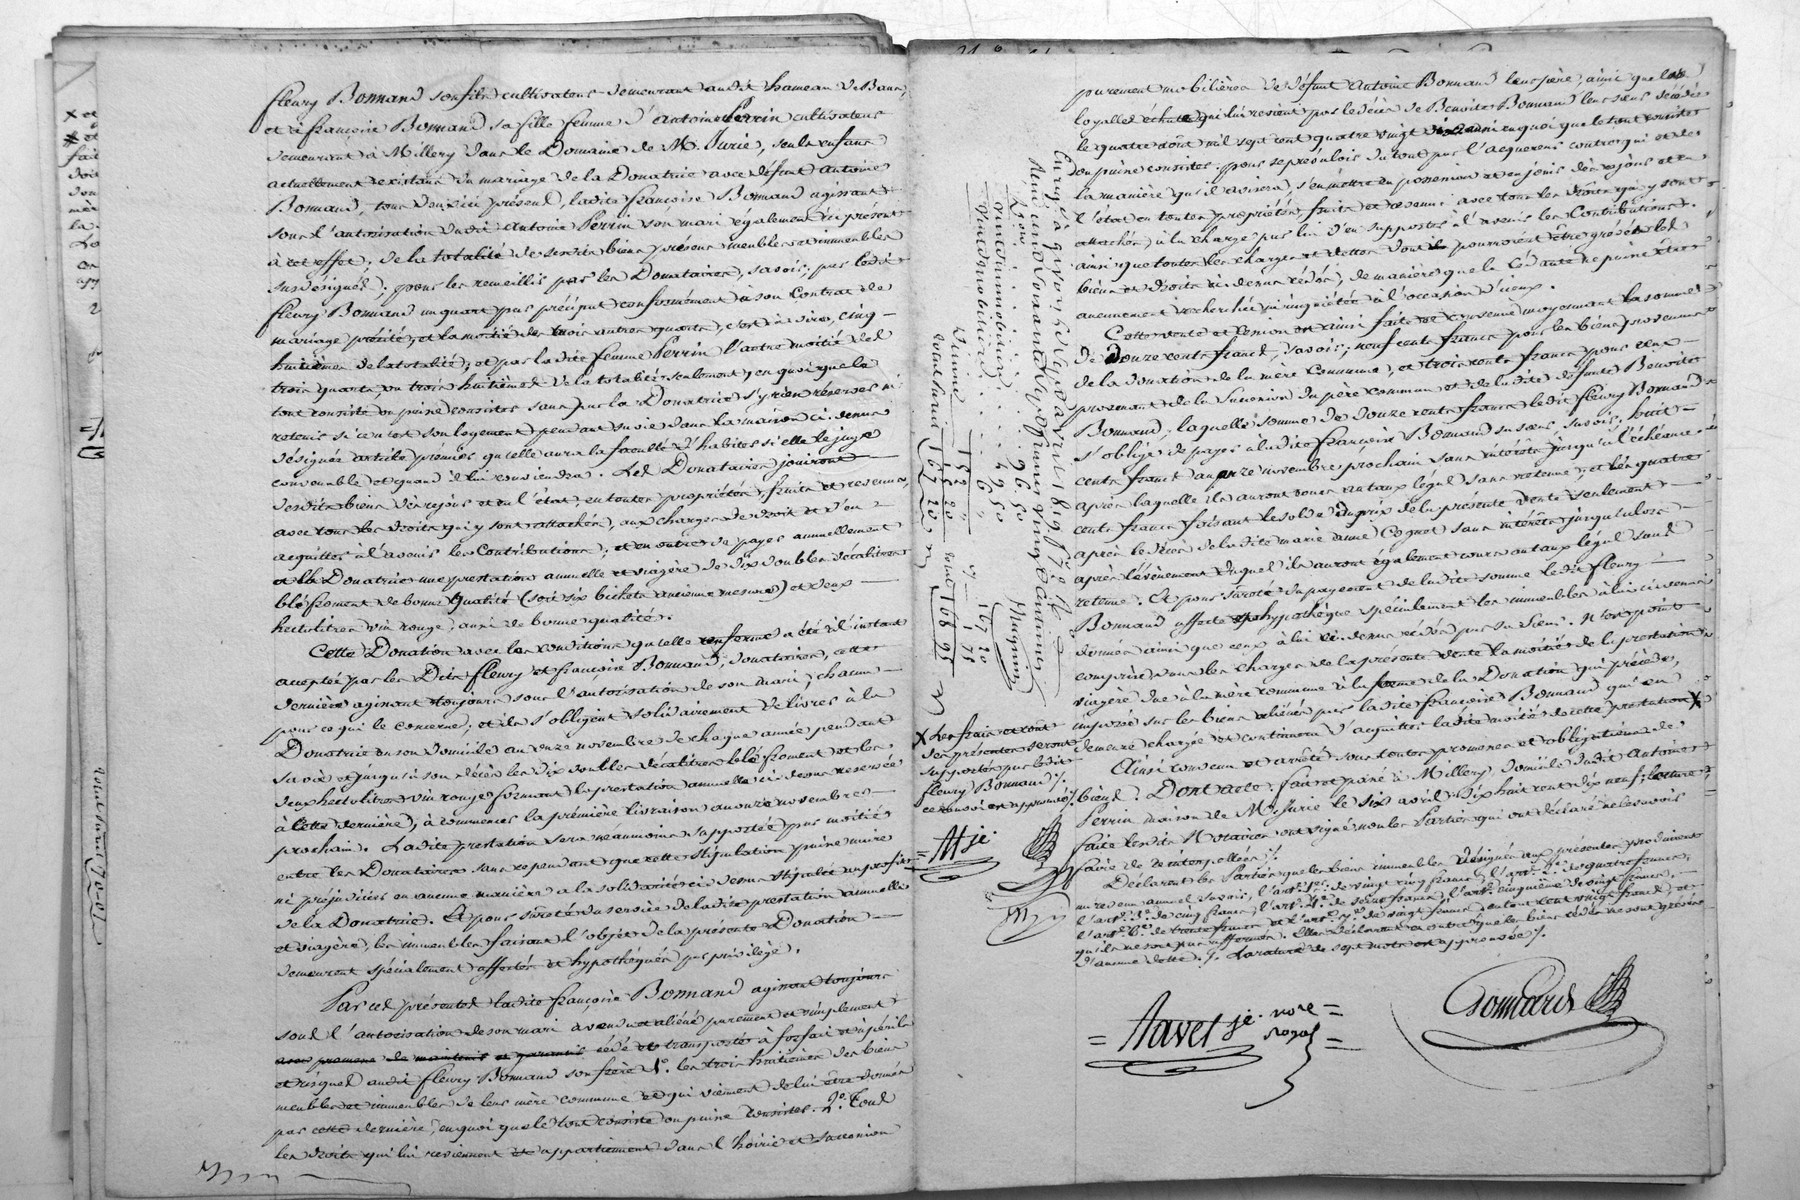 fleury Bonnand son fils cultivateur demeurant audit hameau de
et à françoise Bonnand sa fille femme d'antoine Perrin cultivateur
demeurant à Millery dans le Domaine de Mr. Jurie, seuls enfans
actuellement existans du mariage de la Donatrice avec défunt antoine
Bonnand, tous deux ici présens, ladite françoise Bonnand agissant
sous l'autorisation dudit antoine Perrin son mari également ici présent
à cet effet; de la totalité de ses dits biens présens meubles et immeubles
susdésignés; pour les recueillir par les Donataires, savoir; par ledit
fleury Bonnand un quart par préciput conformément à son Contrat de
mariage précité, et la moitié des trois autres quarts, c'est à dire, cinq
huitièmes de la totalité; et par ladite femme Perrin l'autre moitié des
trois quarts, ou trois huitièmes de la totalité seulement, en quoi que le
tout consiste ou puisse consister sans par la Donatrice s'y rien réserver ni
retenir si ce n'est son logement pendant sa vie dans la maison ci-dessus
désignée article premier qu'elle aura la faculté d'habiter si elle le juge
convenable et quand il lui conviendra. Les Donataires jouiront
desdits biens dès ce jour et en l'état en toutes propriétés, fruits et revenus,
avec tous les droits qui y sont attachés, aux charges de droit et d'en
acquitter à l'avenir les Contributions; et en outre de payer annuellement
à la Donatrice une prestation annuelle et viagère de dix doubles décalitres
blé froment de bonne qualité (soit six bichets ancienne mesure) et deux
hectolitres vin rouge, aussi de bonne qualité.
Cette Donation avec les conditions qu'elle renferme a été à l'instant
acceptée par les Dits fleury et françoise Bonnand, donataires, cette
dernière agissant toujours sous l'autorisation de son mari, chacun
pour ce qui le concerne; et ils s'obligent solidairement de livrer à la
Donatrice en son domicile au onze novembre de chaque année pendant
sa vie et jusqu'à son décès les dix doubles décalitres blé froment et les
deux hectolitres vin rouge formant la prestation annuelle ci-dessus réservée
à cette dernière, à commencer la première livraison au onze novembre
prochain. Ladite prestation sera néanmoins supportée par moitié
entre les Donataires sans cependant que cette stipulation puisse nuire
ni préjudicier en aucune manière à la solidarité ci-dessus stipulée au profit
de la Donatrice. Et pour sûreté du service de ladite prestation annuelle
et viagère, les immeubles faisant l'objet de la présente Donation
demeurent spécialement affectés et hypothéqués par privilège.
Par ces présentes ladite françoise Bonnand agissant toujours
sous l'autorisation de son mari a vendu et aliéné purement et simplement
avec promesse de maintenir et garantir cédé et transporté à forfait et à périls
et risques audit fleury Bonnand son frère 1°. les trois huitièmes des biens
meubles et immeubles de leur mère commune et qui viennent de lui être donnés
par cette dernière, en quoi que le tout consiste ou puisse consister. 2°. Tous
les droits qui lui reviennent et appartiennent dans l'hoirie et succession
purement mobilière de défunt antoine Bonnand leur père, ainsi que
échute qui lui revient par le décès de Benoite Bonnand leur sœur décédée
le quatre août mil sept cent quatre vingt en quoi que le tout consiste
ou puisse consister; pour se prévaloir du tout par l'acquéreur contre qui et de
la manière qu'il avisera, s'en mettre en possession et en jouir dès ce jour et en
l'état en toutes propriétés, fruits et revenus avec tous les droits qui y sont
attachés, à la charge par lui d'en supporter à l'avenir les Contributions,
ainsi que toutes les charges et dettes dont pourroient être grevés les
biens et droits ci-dessus cédés, de manière que la Cédante ne puisse être
aucunement recherchée ni inquiétée à l'occasion d'iceux.
Cette vente et Cession est ainsi faite et convenue moyennant la somme
de Douze cents francs, savoir; neuf cents francs pour les biens provenus
de la donation de la mère Commune, et trois cents francs pour ceux
provenant de la Succession du père commun et de ladite défunte Benoite
Bonnand, laquelle somme de Douze cents francs ledit fleury Bonnand
s'oblige de payer à ladite françoise Bonnand sa sœur, savoir; huit
cents francs au onze novembre prochain sans intérêts jusqu'à l'échéance
après laquelle ils auront cours au taux légal sans retenue; et les quatre
cents francs faisant le solde du prix de la présente vente seulement
après le décès de ladite marie anne Cognet sans intérêts jusqu'alors
après l'évènement duquel ils auront également cours au taux légal sans
retenue. Et pour sûreté du payement de ladite somme ledit fleury
Bonnand affecte et hypothèque spécialement les immeubles à lui ci-dessus
donnés ainsi que ceux à lui ci-dessus cédés par sa sœur. N'est point
comprise dans les charges de la présente vente la moitié de la prestation
viagère due à la mère commune à la forme de la Donation qui précède,
imposée sur les biens aliénés par ladite françoise Bonnand qui en
demeure chargée et continuera d'acquitter ladite moitié de cette prestation X
Ainsi convenu et arrêté sous toutes promesses et obligations de
biens. Dont acte. fait et passé à Millery, domicile dudit Antoine
Perrin maison de Mr. Jurie le six avril dix huit cent dix neuf; lecture
faite lesdits Notaires ont signé non les Parties qui ont déclaré ne le savoir
faire de ce interpellées /.
Déclarent les Parties que les biens immeubles désignés aux présentes produisent
un revenu annuel, savoir, l'art. 1er. de vingt cinq francs, l'art. 2e. de quatre francs,
l'art. 3e. de cinq francs, l'art. 4e. de seize francs, l'art. cinquième de vingt francs,
l'art. 6e. de trente francs et l'art. 7e. de vingt francs, en tout cent vingt francs, et
qu'ils ne sont pas affermés. Elles déclarent en outre que les biens cédés ne sont grevés
d'aucune dette. /. La rature de sept mots est approuvée /.
X Les frais et coût
des présentes seront
supportés par ledit
fleury Bonnand /.
ce renvoi est approuvé /.
Enrgé. à givors le sept avril 1819
Reçu cinq francs cinquante centimes
96. 50
4. 50
Magnin
152
15 20
167 20
167 20
1 75
168 95
Favet je. nore
royal